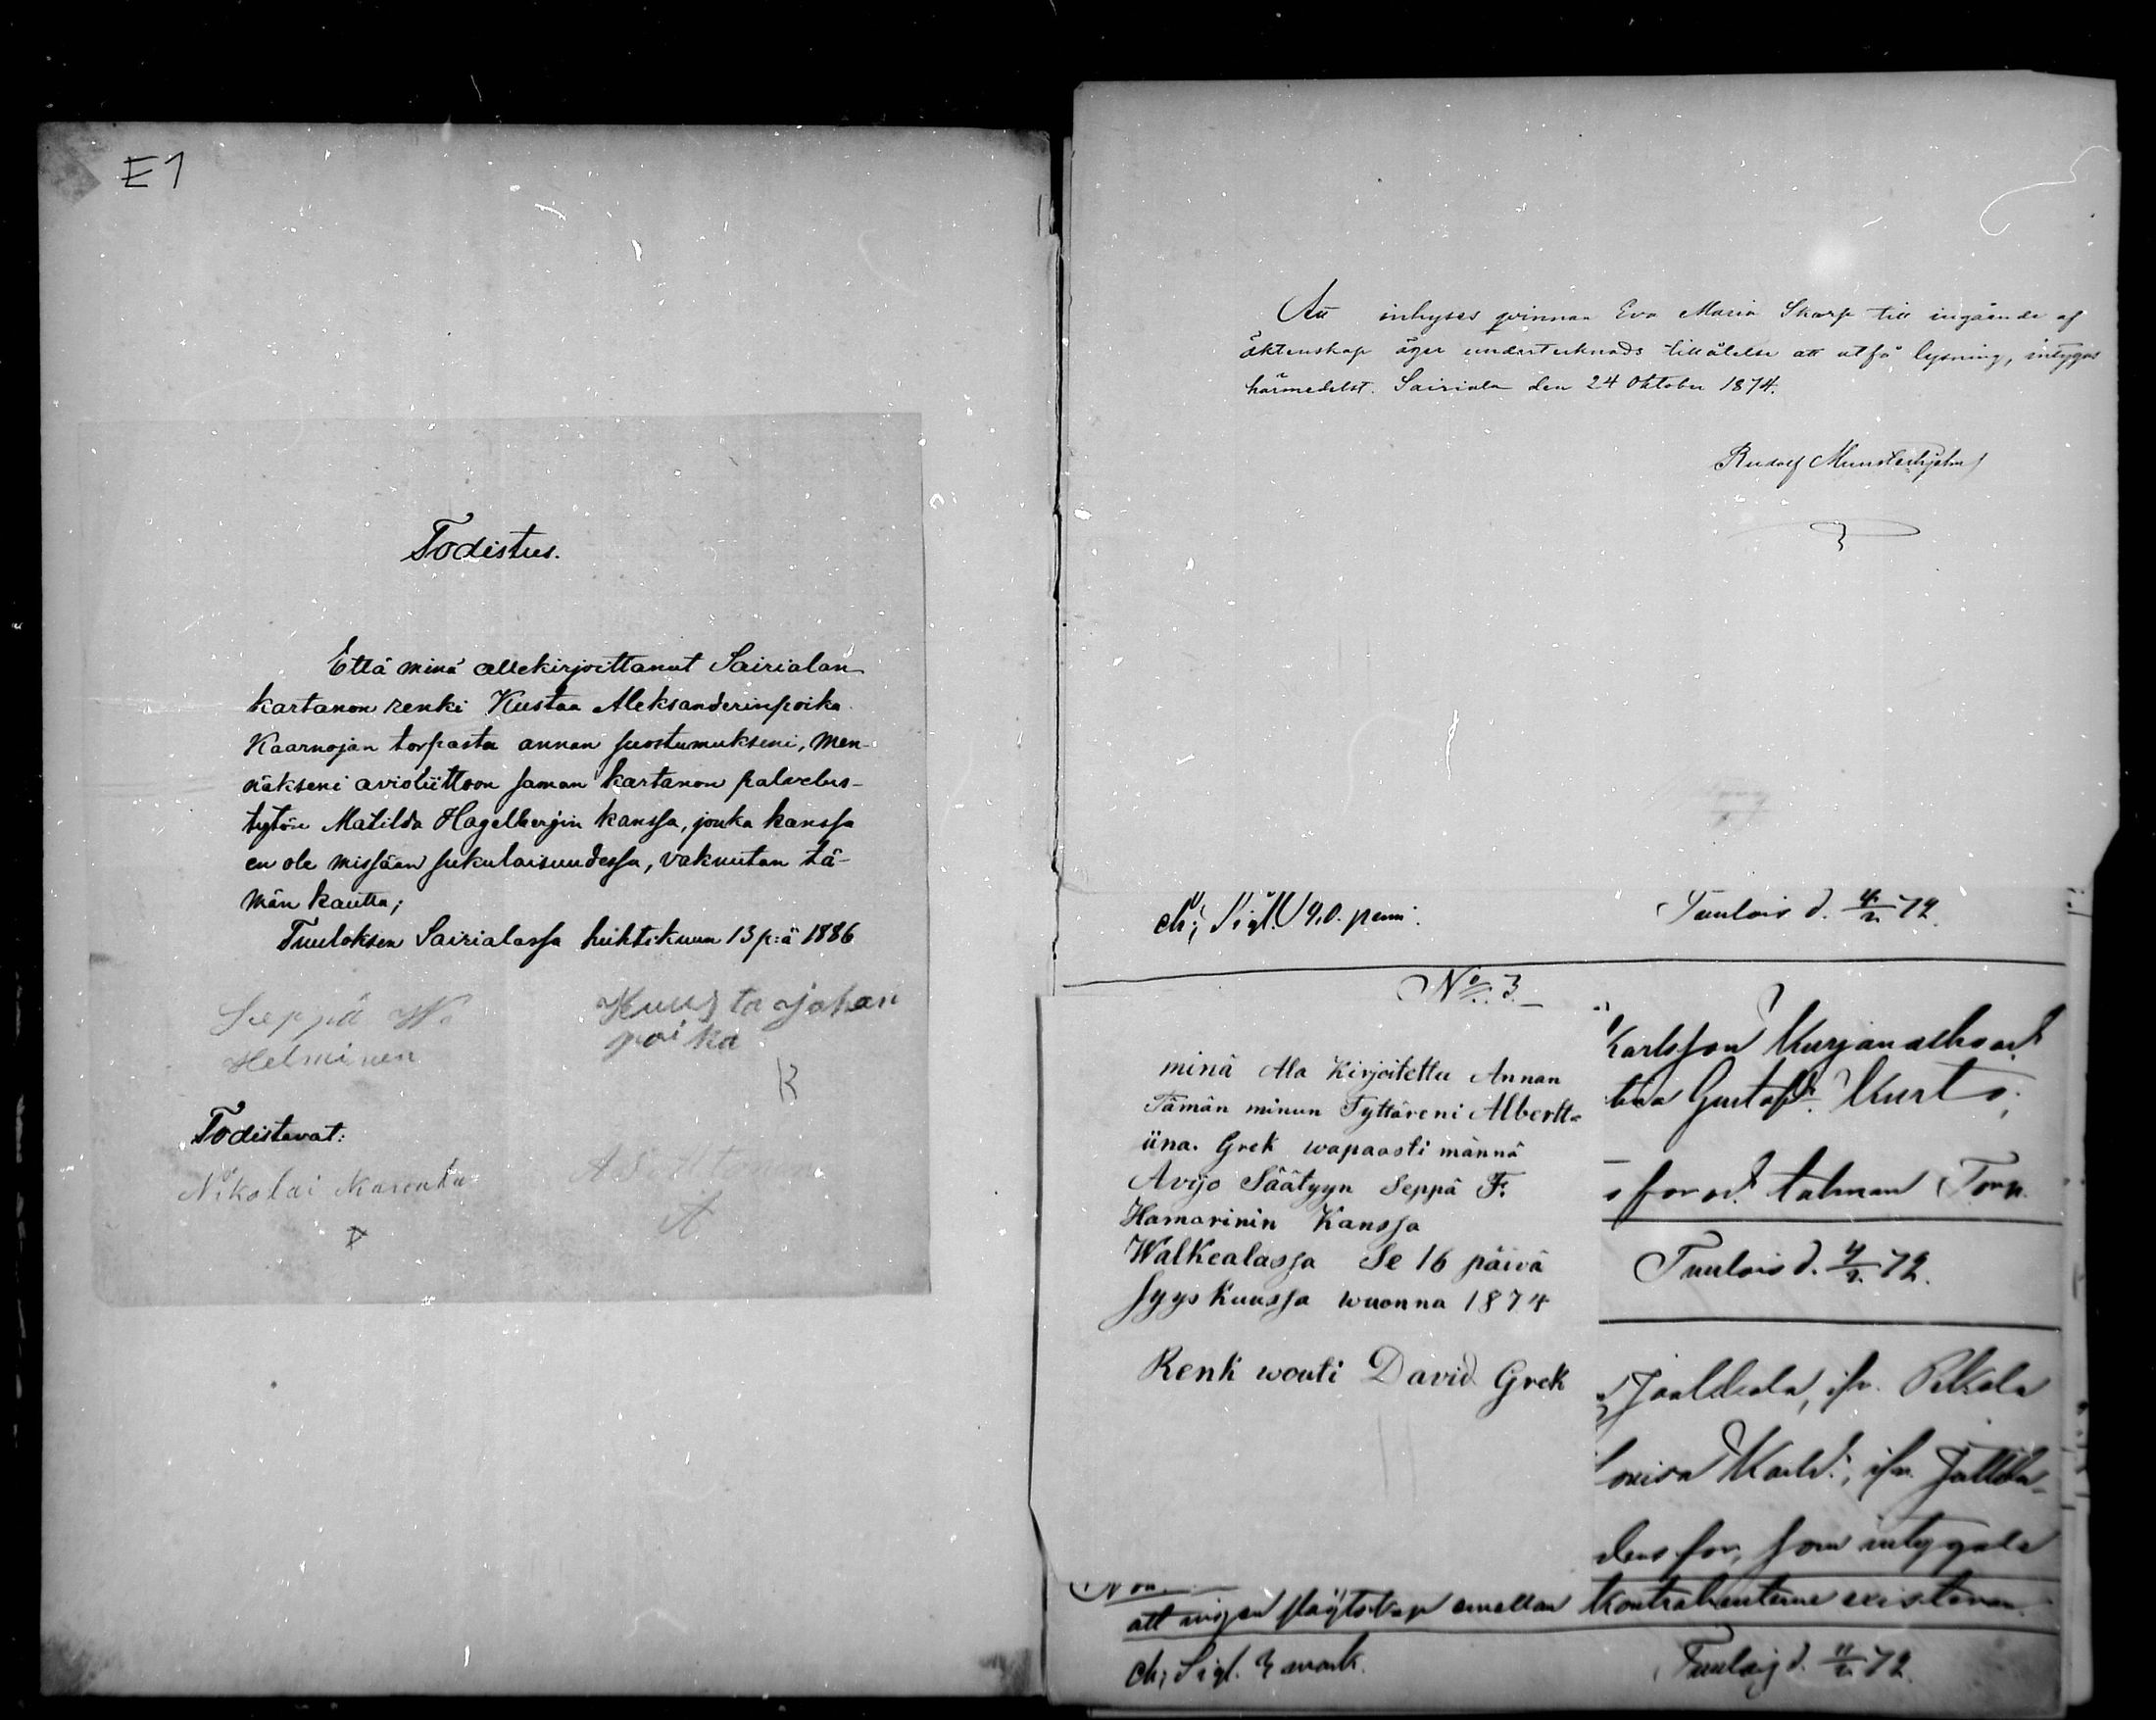 E1
Todistus.
Että minä allekirjoittanut Sairialan
kartanon renki Kustaa Aleksanderinpoika
Kaarnojan torpasta annan suostumukseni, men-
näkseni avioliittoon saman kartanon palvelus-
tytön Matilda Hagelbergin kanssa, jonka kanssa
en ole missään sukulaisuudessa, vakuutan tä-
män kautta;
Tuuloksen Sairialassa huhtikuun 13 p:ä 1886
Seppä W.
Helminen
Kuusta Johan
poika
K
Todistavat:
Nikolai
A
Att inhyses qvinnan Eva Maria Skarp till ingående af
äktenskap äger undertecknads tillåtelse att utfå lysning, intygas
härmedelst. Sairiala den 24 Oktober 1874.
Rudolf Munsterhjelm
ch; Sigl. 40. penni.
Tuulois d. 72.
No. 3.
minä Ala Kirjoitettu Annan
Tämän minun Tyttäreni Albertt=
iina. Grek wapaasti männä
Avijo Säätyyn Seppä F.
Hamarinin Kanssa
Walkealassa Se 16 päivä
Syys Kuussa wuonna 1874
Renk wouti David Grek
Karlsson
Gustafsd. Kurto;
talman Torp.
Tuulois d. 72.
Jaakkola, ifr.
Lovisa Karlsd., ifr.
som intygade
att ingen skyldskap emellan kontrahenterne existerar.
ch; Sigl. mark.
Tuulois d. 72.